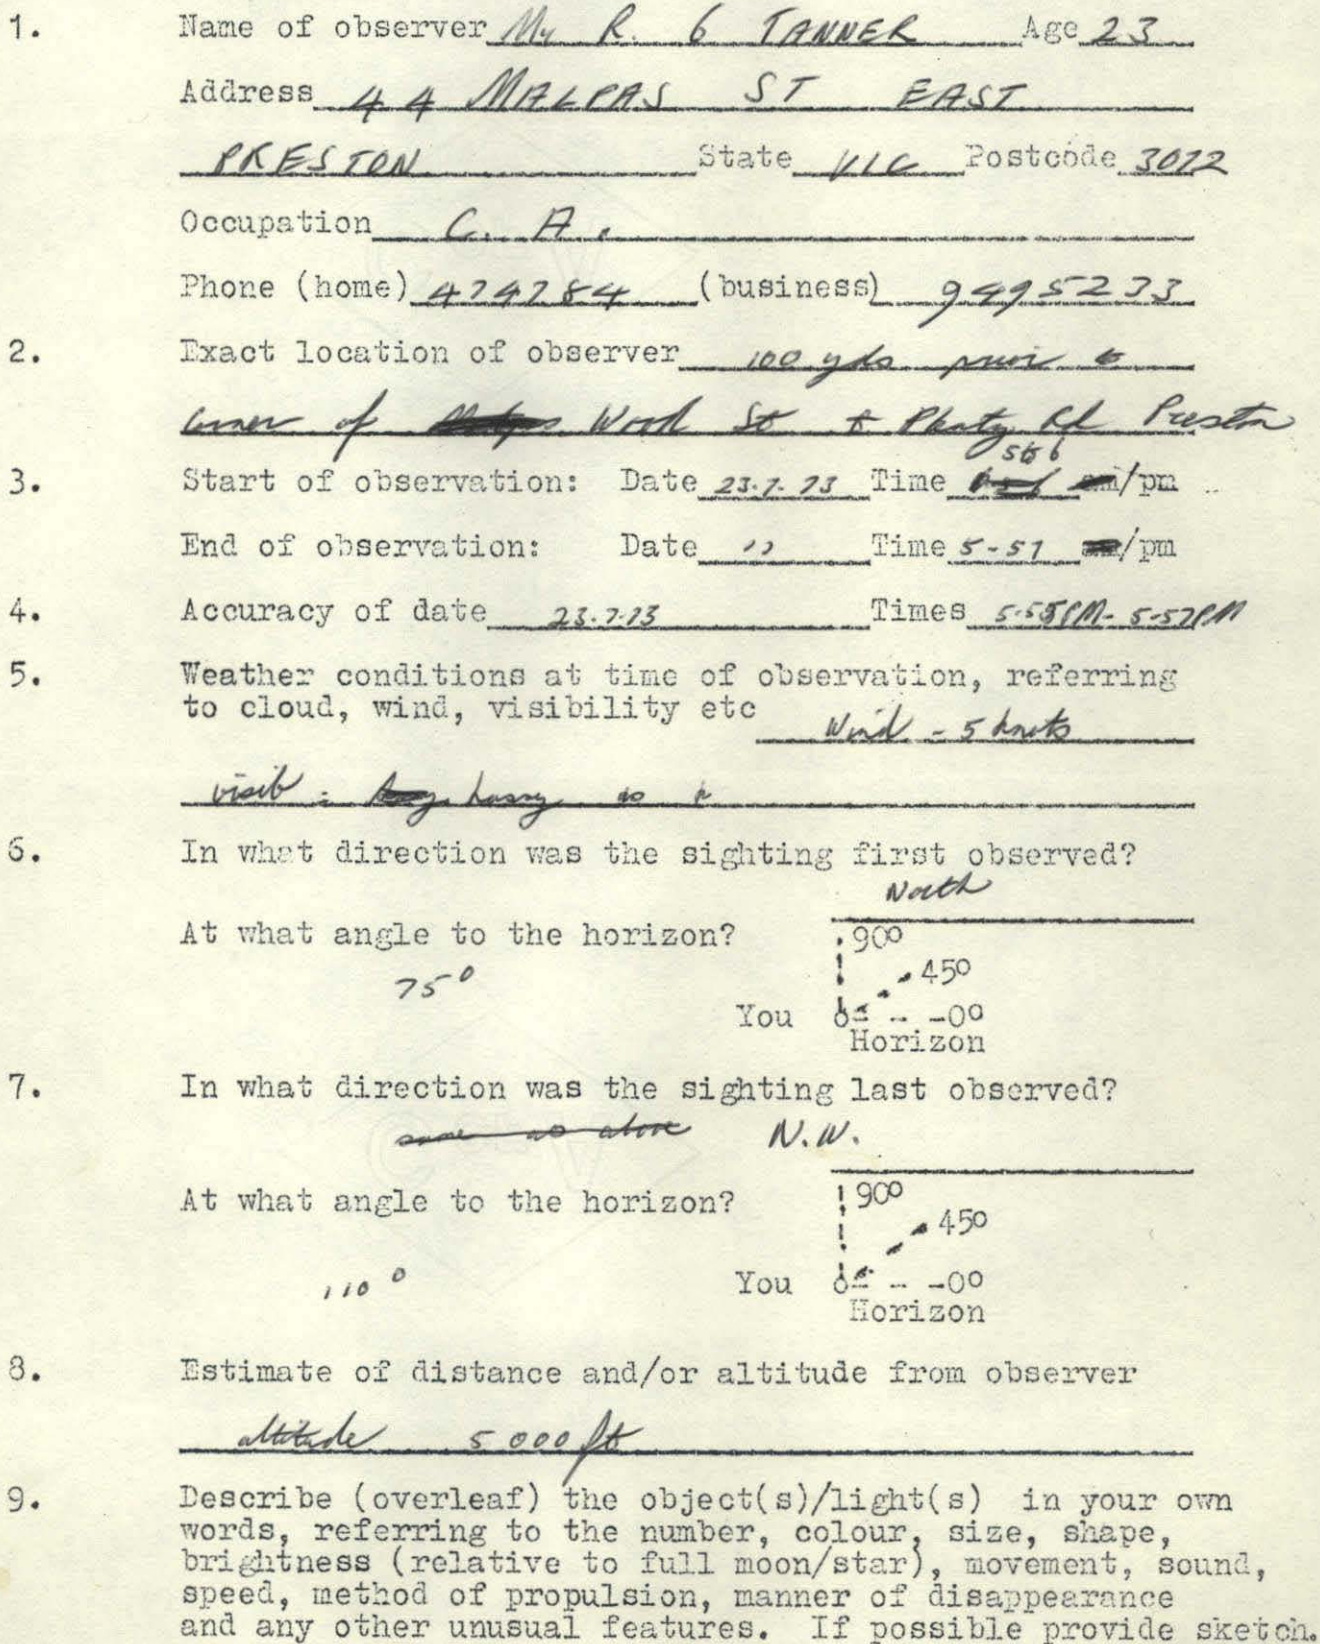 1. Name of observer Mr R. G TANNER Age 23
Address 44 MALPAS ST EAST
PRESTON State VIC Postcode 3072
Occupation C. A.
Phone (home) 474784 (business) 9495233
2. Exact location of observer 100 yds prior to
corner of Wood St + Plenty Rd Preston
3. Start of observation: Date 23.7.73 Time am/pm
End of observation: Date " Time 5-57 am/pm
4. Accuracy of date 23.7.73 Times 5.55PM - 5-57PM
5. Weather conditions at time of observation, referring
to cloud, wind, visibility etc Wind - 5 knots
visib :
6. In what direction was the sighting first observed?
North
At what angle to the horizon? 90°
75° 45°
You -0°
Horizon
7. In what direction was the sighting last observed?
same as above N.W.
At what angle to the horizon? 90°
45°
110° You -0°
Horizon
8. Estimate of distance and/or altitude from observer
altitude 5000 ft
9. Describe (overleaf) the object(s)/light(s) in your own
words, referring to the number, colour, size, shape,
brightness (relative to full moon/star), movement, sound,
speed, method of propulsion, manner of disappearance
and any other unusual features. If possible provide sketch.